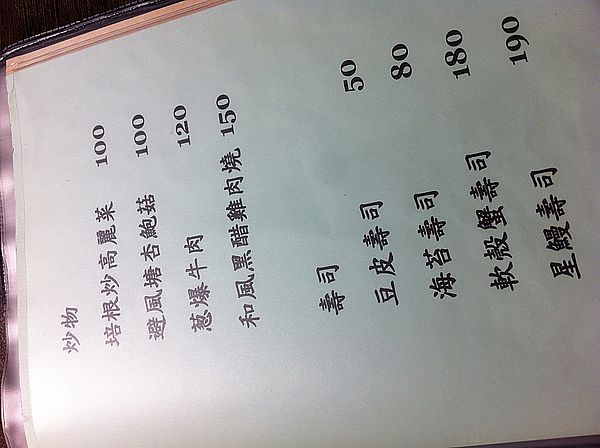 炒物
培根炒高麗菜 100
避風塘杏鮑菇 100
葱爆牛肉 120
和風黑醋雞肉燒 150
壽司
豆皮壽司 50
海苔壽司 80
軟殼蟹壽司 180
星鰻壽司 190